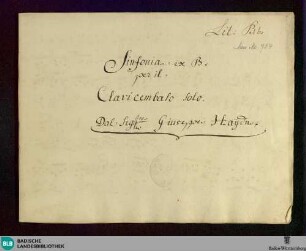 Lit. Bb.
Sinfonia ex B.
per il
Clavicembalo Solo.
Dal Sigre Giuseppe Haydn.
BLB
BADISCHE
LANDESBIBLIOTHEK
Baden-Württemberg